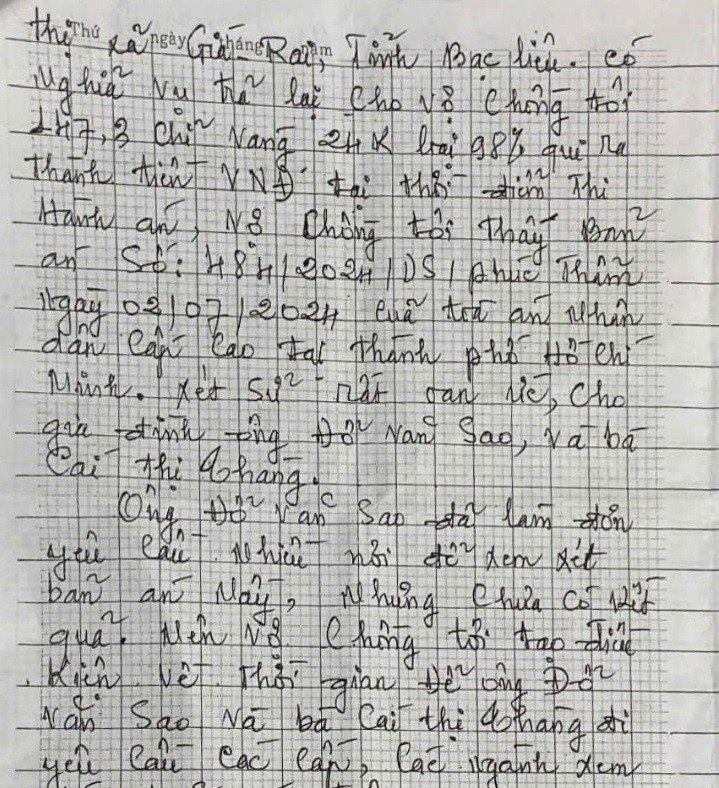 thị xã Giá Rai, Tỉnh Bạc liêu. có
Thứ ngày tháng năm
Nghiã vụ trả lại Cho vợ chồng tôi
147,3 chỉ vàng 24K loại 98% qui ra
thành tiền VNĐ tại thời điểm Thi
Hành án, vợ chồng tôi thấy Bản
án Số: 484/2024/DS/phúc Thẩm
ngày 02/07/2024 cuả toà án Nhân
dân Cấp Cao tại thành phố Hồ Chí
Minh. xét Sử rất oan ức, cho
gia đình ông Đỗ văn Sao, và bà
Cai thị Khang.
Ông Đỗ văn Sao đã làm đơn
yêu cầu Nhiều nơi để xem xét
bản án Nầy, Nhưng Chưa có kết
quả. Nên vợ Chồng tôi tạo điều
kiện về Thời gian để ông Đỗ
văn Sao và bà Cai thị Khang đi
yêu cầu các cấp, các ngành xem